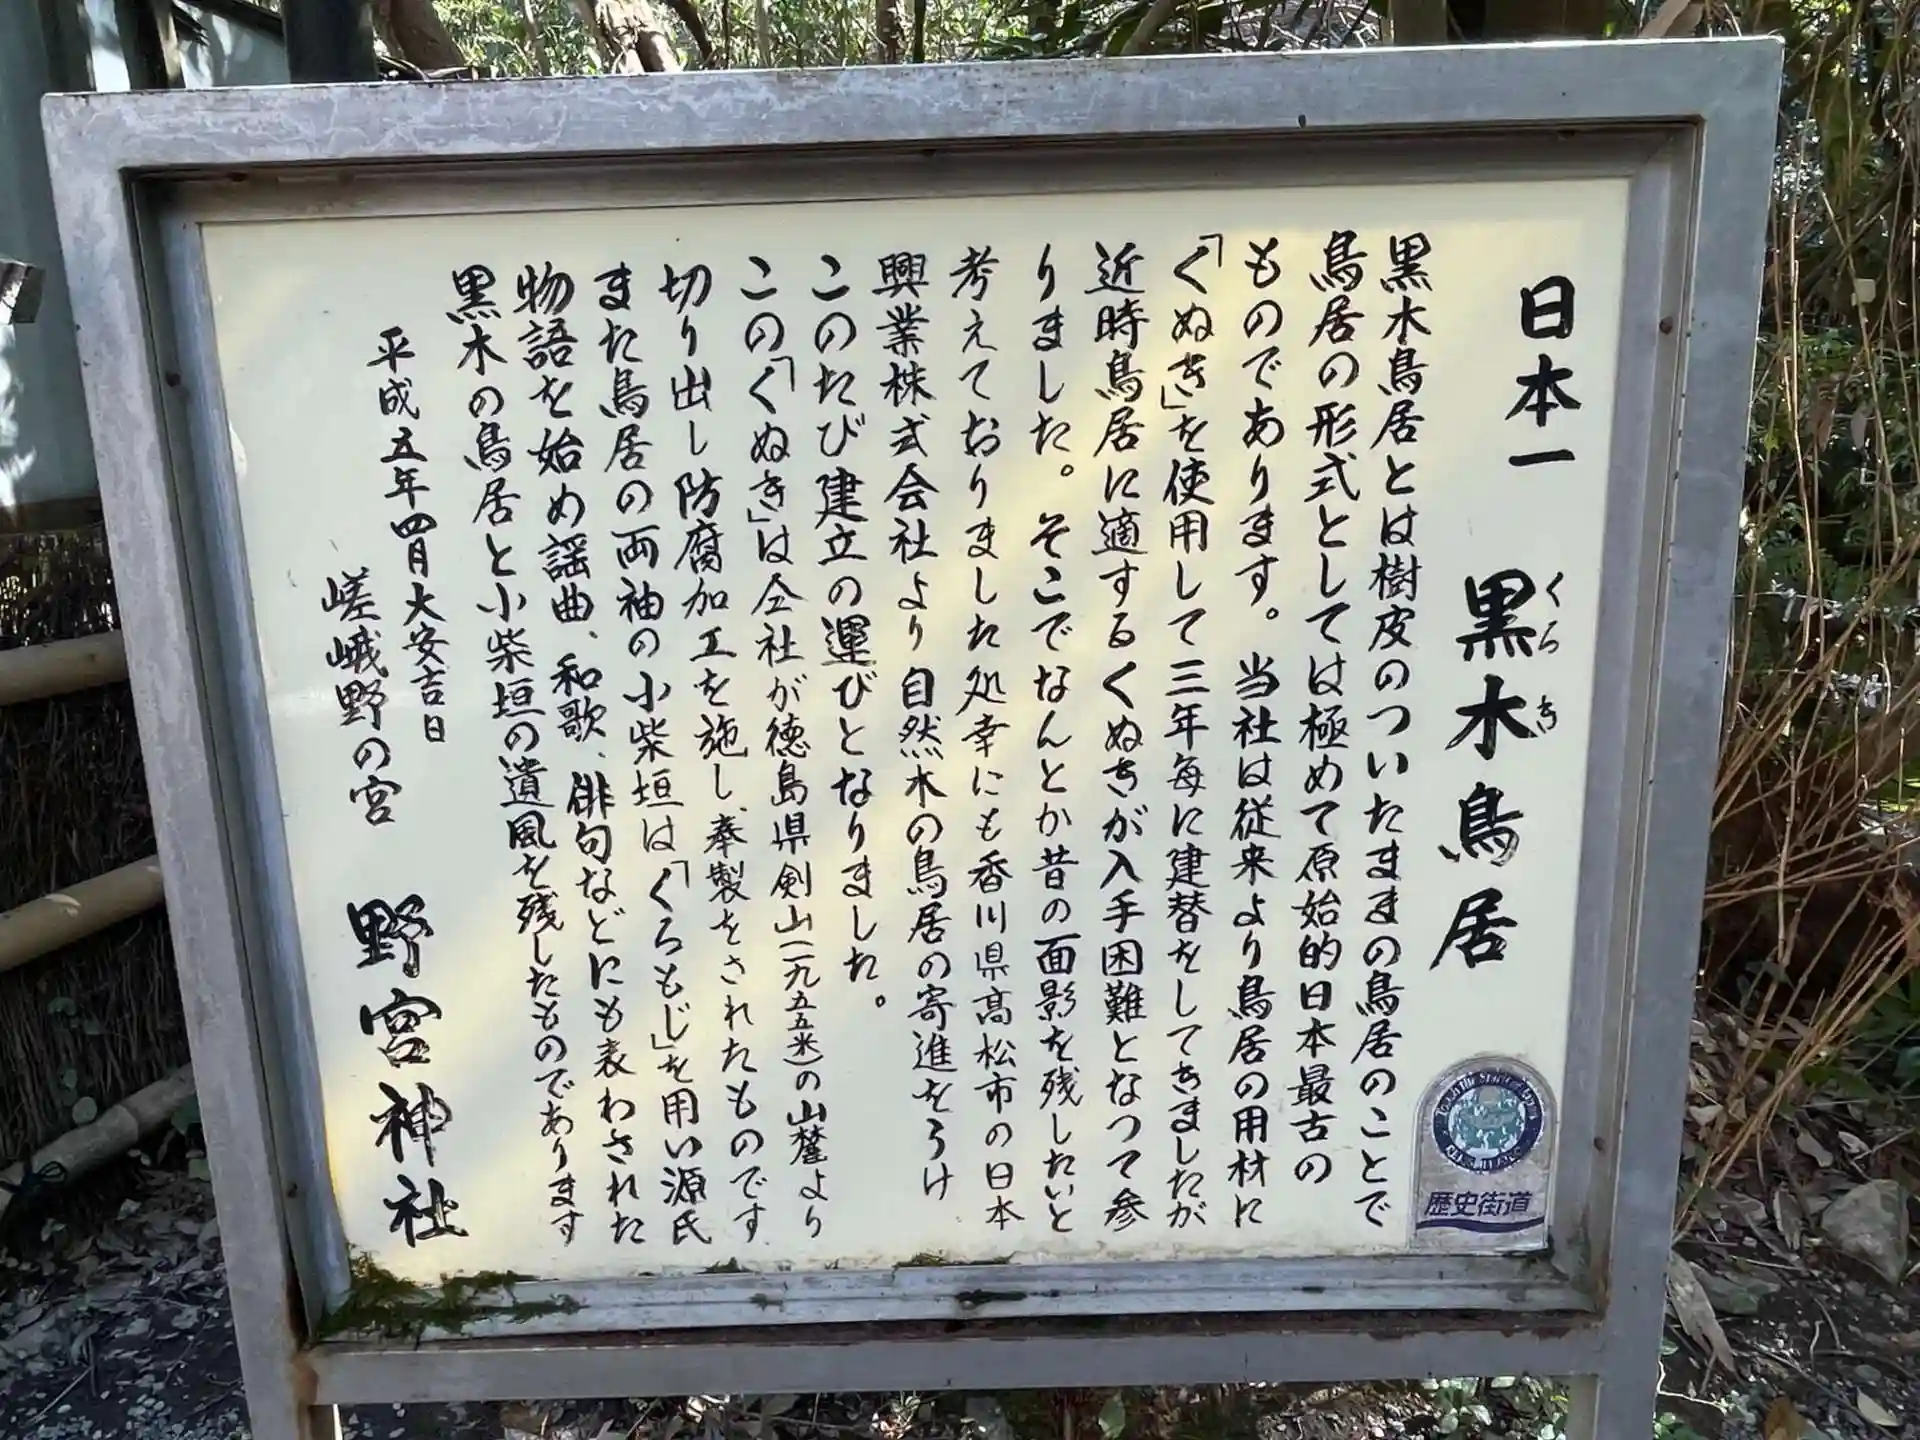 日本一　黒木鳥居
くろき
黒木鳥居とは樹皮のついたままの鳥居のことで
鳥居の形式としては極めて原始的日本最古の
ものであります。当社は従来より鳥居の用材に
「くぬぎ」を使用して三年毎に建替をしてきましたが
近時鳥居に適するくぬぎが入手困難となって参
りました。そこでなんとか昔の面影を残したいと
考えておりました処幸にも香川県高松市の日本
興業株式会社より自然木の鳥居の寄進をうけ
このたび建立の運びとなりました。
この「くぬぎ」は仝社が徳島県剣山(一九五五米)の山麓より
切り出し防腐加工を施し、奉製をされたものです
また鳥居の両袖の小柴垣は「くろもじ」を用い源氏
物語を始め謡曲、和歌、俳句などにも表わされた
黒木の鳥居と小柴垣の遺風を残したものであります
平成五年四月大安吉日
嵯峨野の宮　野宮神社
歴史街道